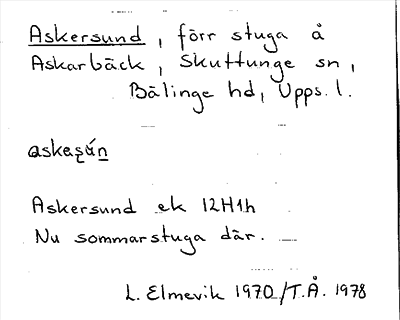 Askersund, förr stuga å
Askarbäck, Skuttunge sn,
Bälinge hd, Upps. l.
Askersund ek 12H1h
Nu sommarstuga där.
L. Elmevik 1970/T.Å. 1978